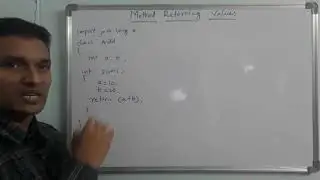 Method Returning Values
import java.lang.*;
class Add
{
int a, b;
int sum()
{
a=10;
b=20;
return (a+b);
}
}